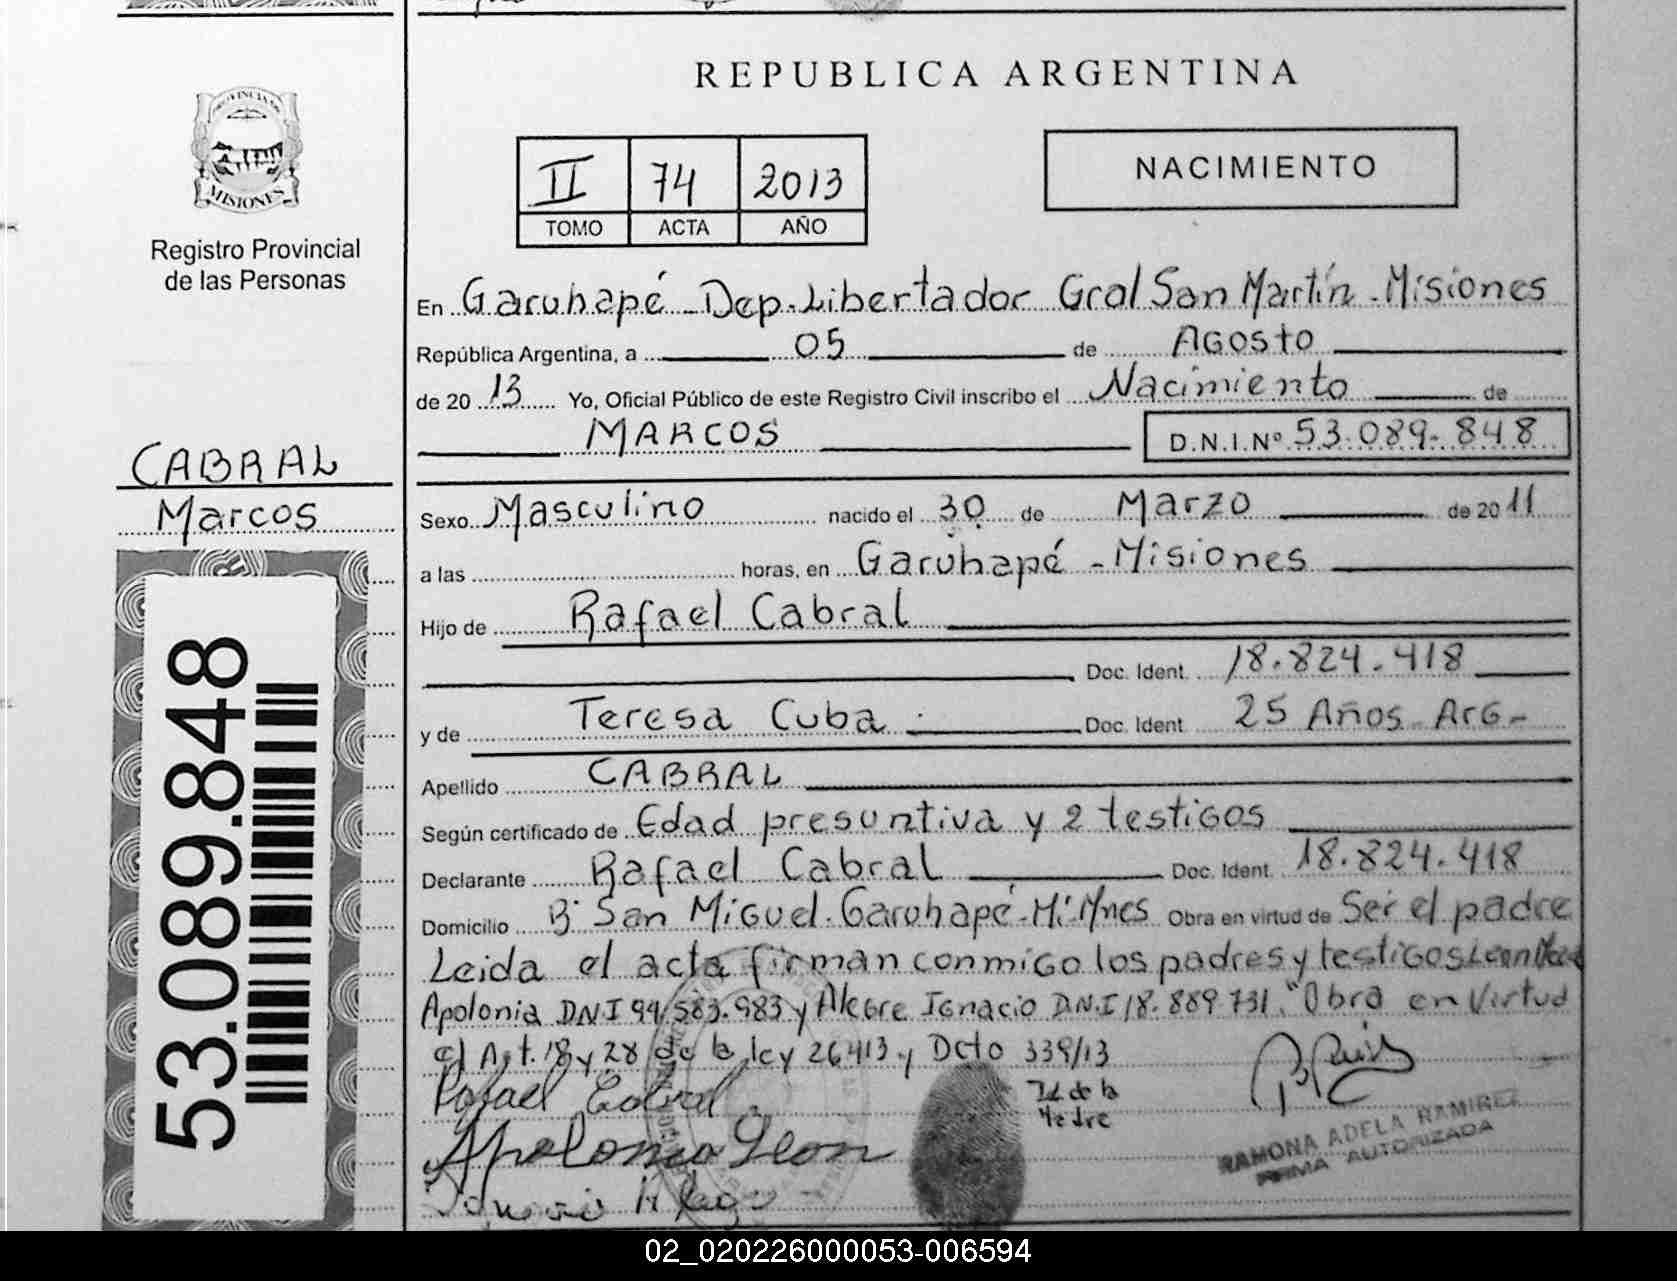 REPUBLICA ARGENTINA
PROVINCIA DE
MISIONES
Registro Provincial
de las Personas
II 74 2013
TOMO ACTA AÑO
NACIMIENTO
En Garuhapé - Dep. Libertador Gral San Martín - Misiones
República Argentina, a 05 de Agosto
de 20 13 Yo, Oficial Público de este Registro Civil inscribo el Nacimiento de
MARCOS D.N.I.Nº 53.089.848
CABRAL
Marcos
Sexo Masculino nacido el 30 de Marzo de 20 11
a las horas, en Garuhapé - Misiones
Hijo de Rafael Cabral
Doc. Ident. 18.824.418
y de Teresa Cuba Doc. Ident. 25 Años Arg-
Apellido CABRAL
Según certificado de Edad presuntiva y 2 testigos
Declarante Rafael Cabral Doc. Ident. 18.824.418
Domicilio Bº San Miguel. Garuhapé - Mí. Mnes Obra en virtud de Ser el padre
Leida el acta firman conmigo los padres y testigos Leon
Apolonia DNI 94/583.983 y Alegre Ignacio D.N.I 18.889.731. "Obra en Virtud
c/ Art. 18 y 28 de la ley 26413 y Dcto 339/13
Rafael Cabral
I.d de la
Madre
Apolonia Leon
RAMONA ADELA RAMIREZ
FIRMA AUTORIZADA
53.089.848
02_020226000053-006594